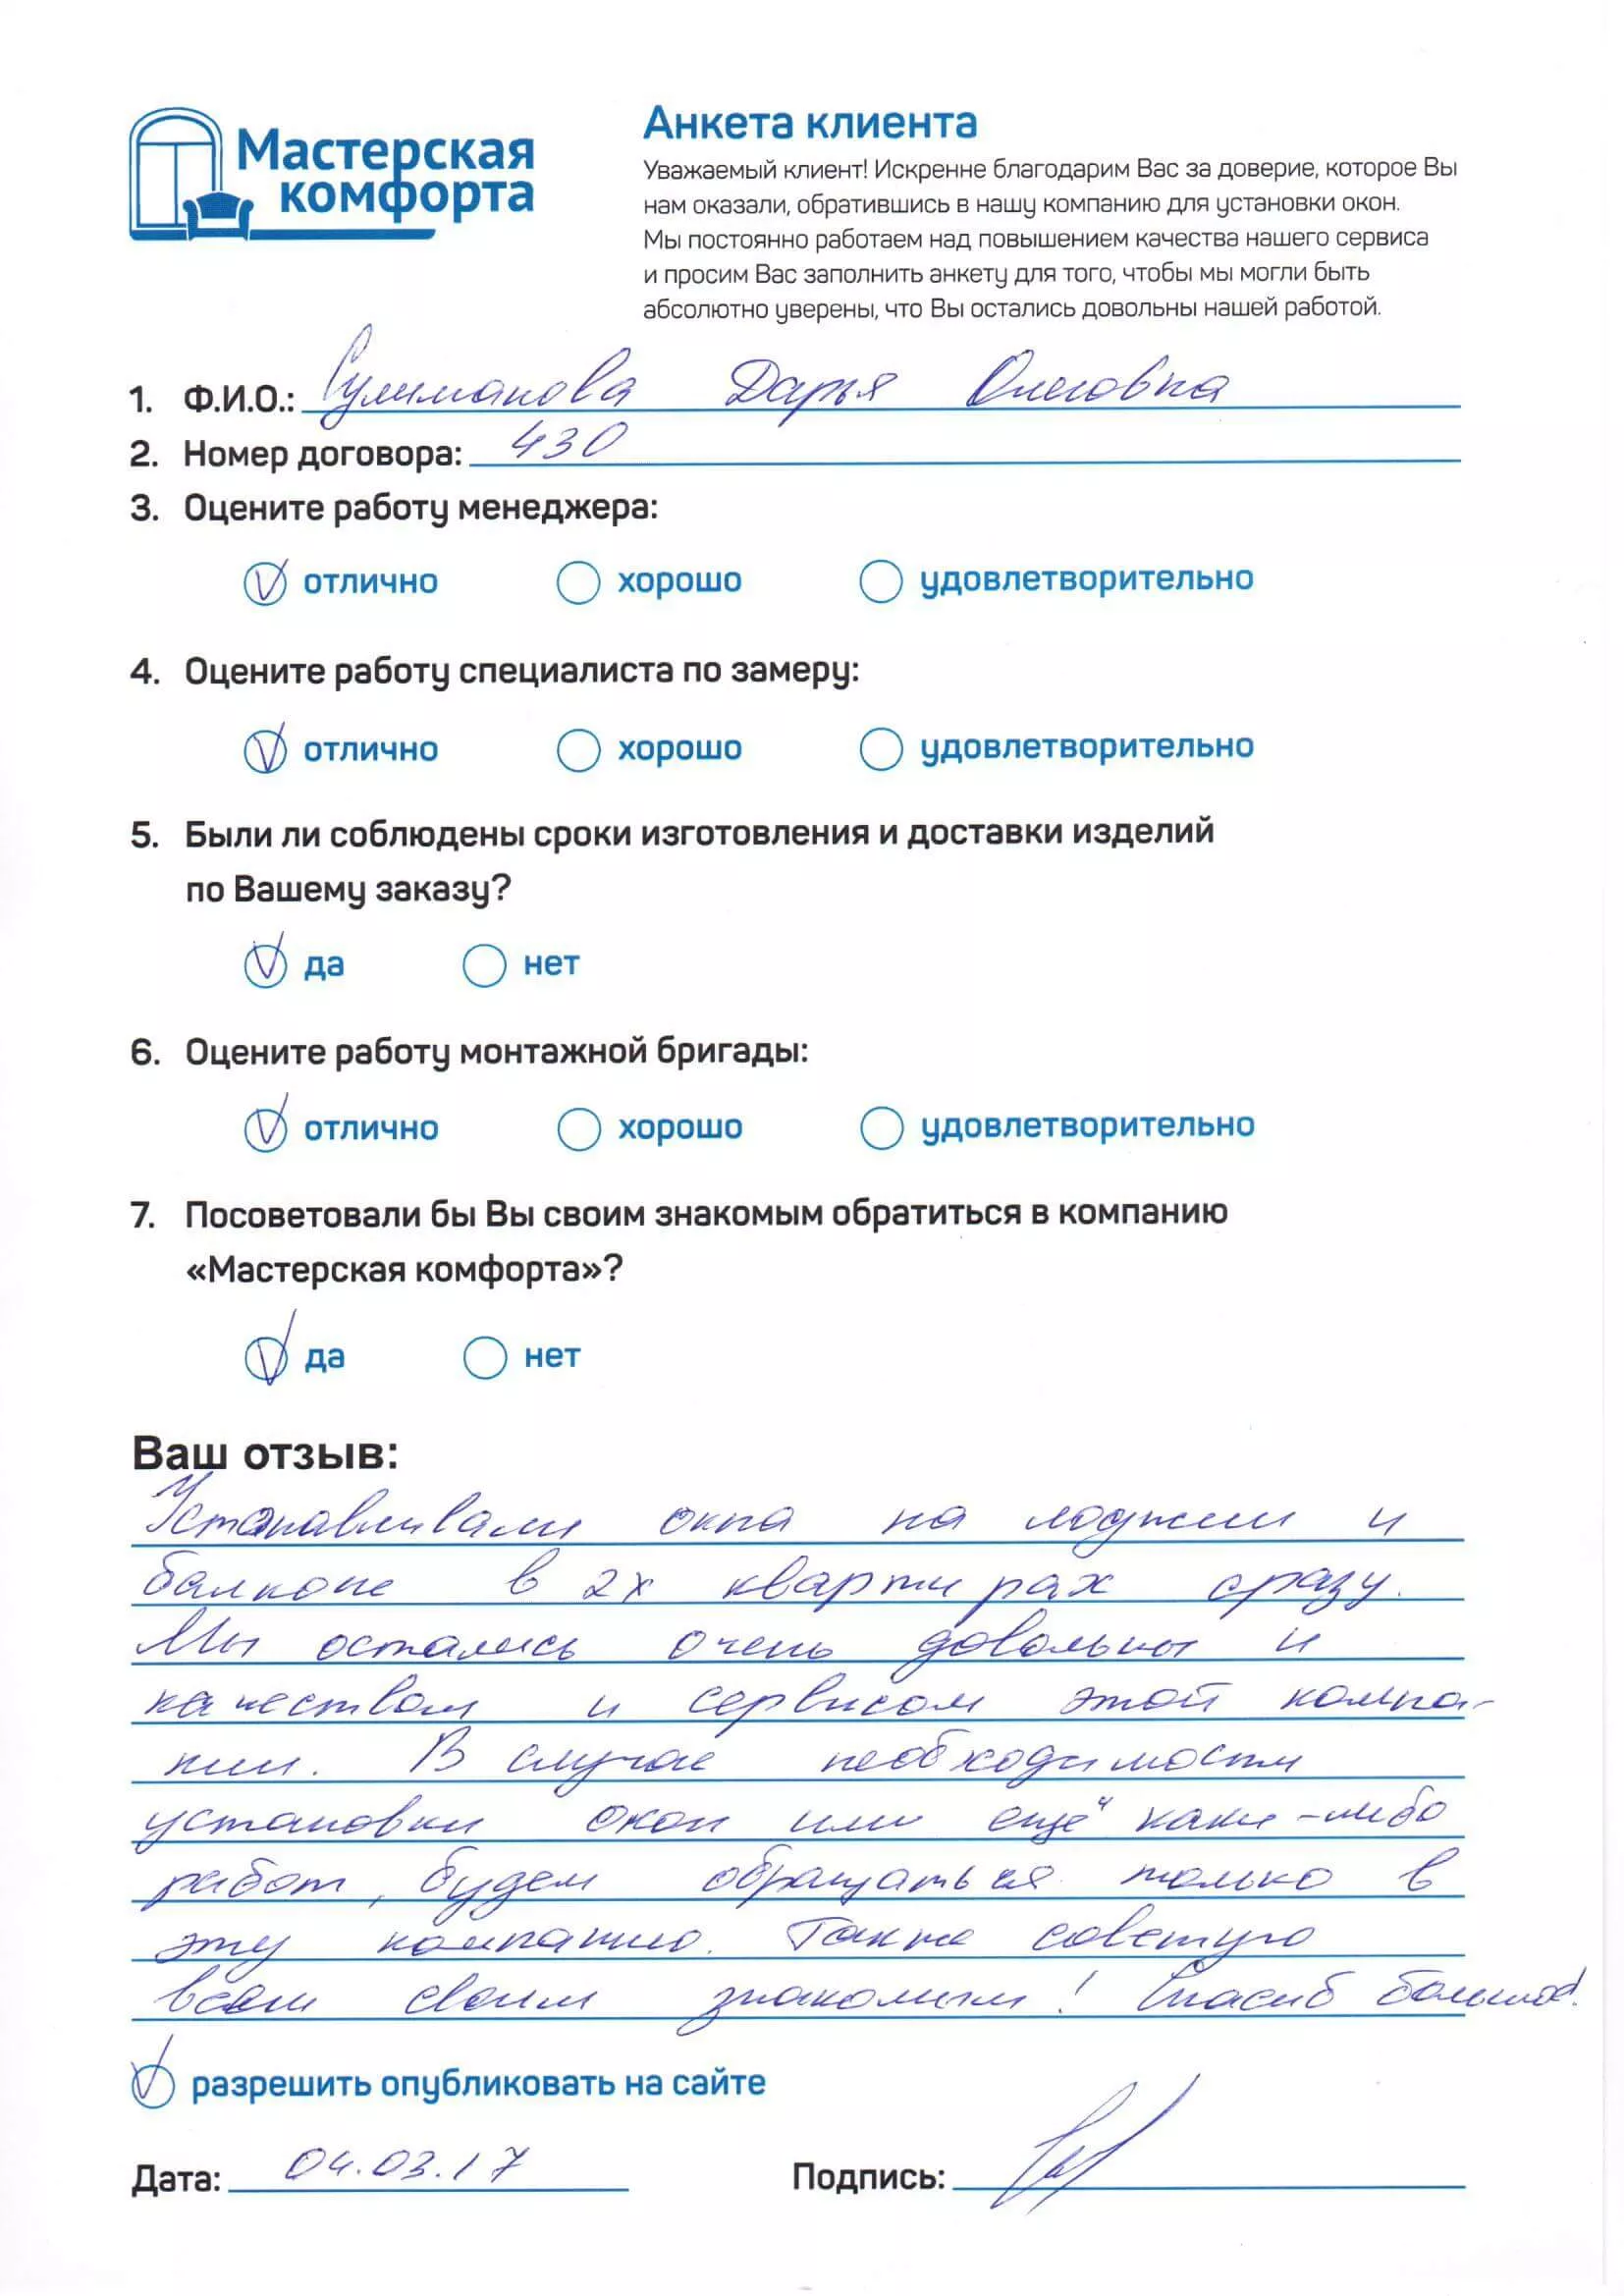 Мастерская
комфорта
Анкета клиента
Уважаемый клиент! Искренне благодарим Вас за доверие, которое Вы
нам оказали, обратившись в нашу компанию для установки окон.
Мы постоянно работаем над повышением качества нашего сервиса
и просим Вас заполнить анкету для того, чтобы мы могли быть
абсолютно уверены, что Вы остались довольны нашей работой.
1. Ф.И.О.: Сулиманова Дарья Олеговна
2. Номер договора: 430
3. Оцените работу менеджера:
отлично хорошо удовлетворительно
4. Оцените работу специалиста по замеру:
отлично хорошо удовлетворительно
5. Были ли соблюдены сроки изготовления и доставки изделий
по Вашему заказу?
да нет
6. Оцените работу монтажной бригады:
отлично хорошо удовлетворительно
7. Посоветовали бы Вы своим знакомым обратиться в компанию
«Мастерская комфорта»?
да нет
Ваш отзыв:
Устанавливали окна на лоджии и
балконе в 2х квартирах сразу.
Мы остались очень довольны и
качеством и сервисом этой компа-
нии. В случае необходимости
установки окон или ещё каки-либо
работ, будем обращаться только в
эту компанию. Также советую
всем своим знакомым! Спасиб большое!
разрешить опубликовать на сайте
Дата: 04.03.17 Подпись: